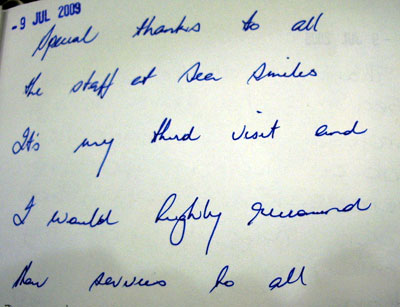 - 9 JUL 2009
Special thanks to all
the staff at Seer Smiles
It's my third visit and
I would highly recommend
their services to all